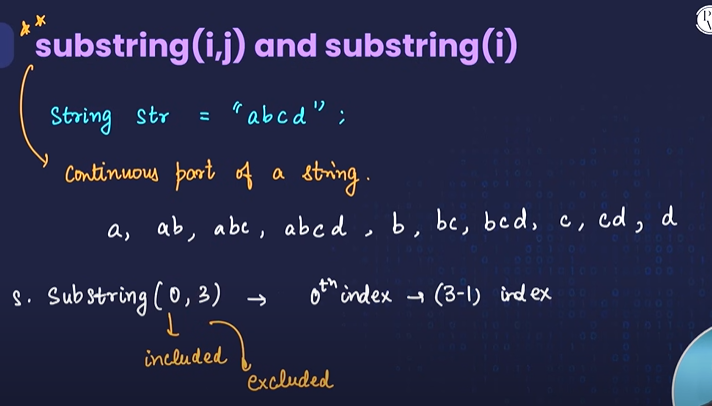 ** substring(i,j) and substring(i)
String str = "abcd";
Continuous part of a string.
a, ab, abc, abcd, b, bc, bcd, c, cd, d
s. Substring(0,3) → 0th index → (3-1) index
included
excluded